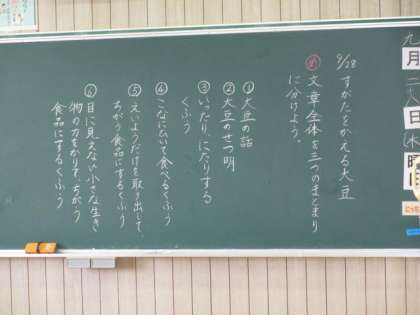 九
月
二八
日
(木)
曜
9/28 すがたをかえる大豆
め 文章全体を三つのまとまり
に分けよう。
① 大豆の話
② 大豆のせつ明
③ いったり、にたりする
くふう
④ こなにひいて食べるくふう
⑤ えいようだけを取り出して、
ちがう食品にするくふう
⑥ 目に見えない小さな生き
物の力をかりて、ちがう
食品にするくふう